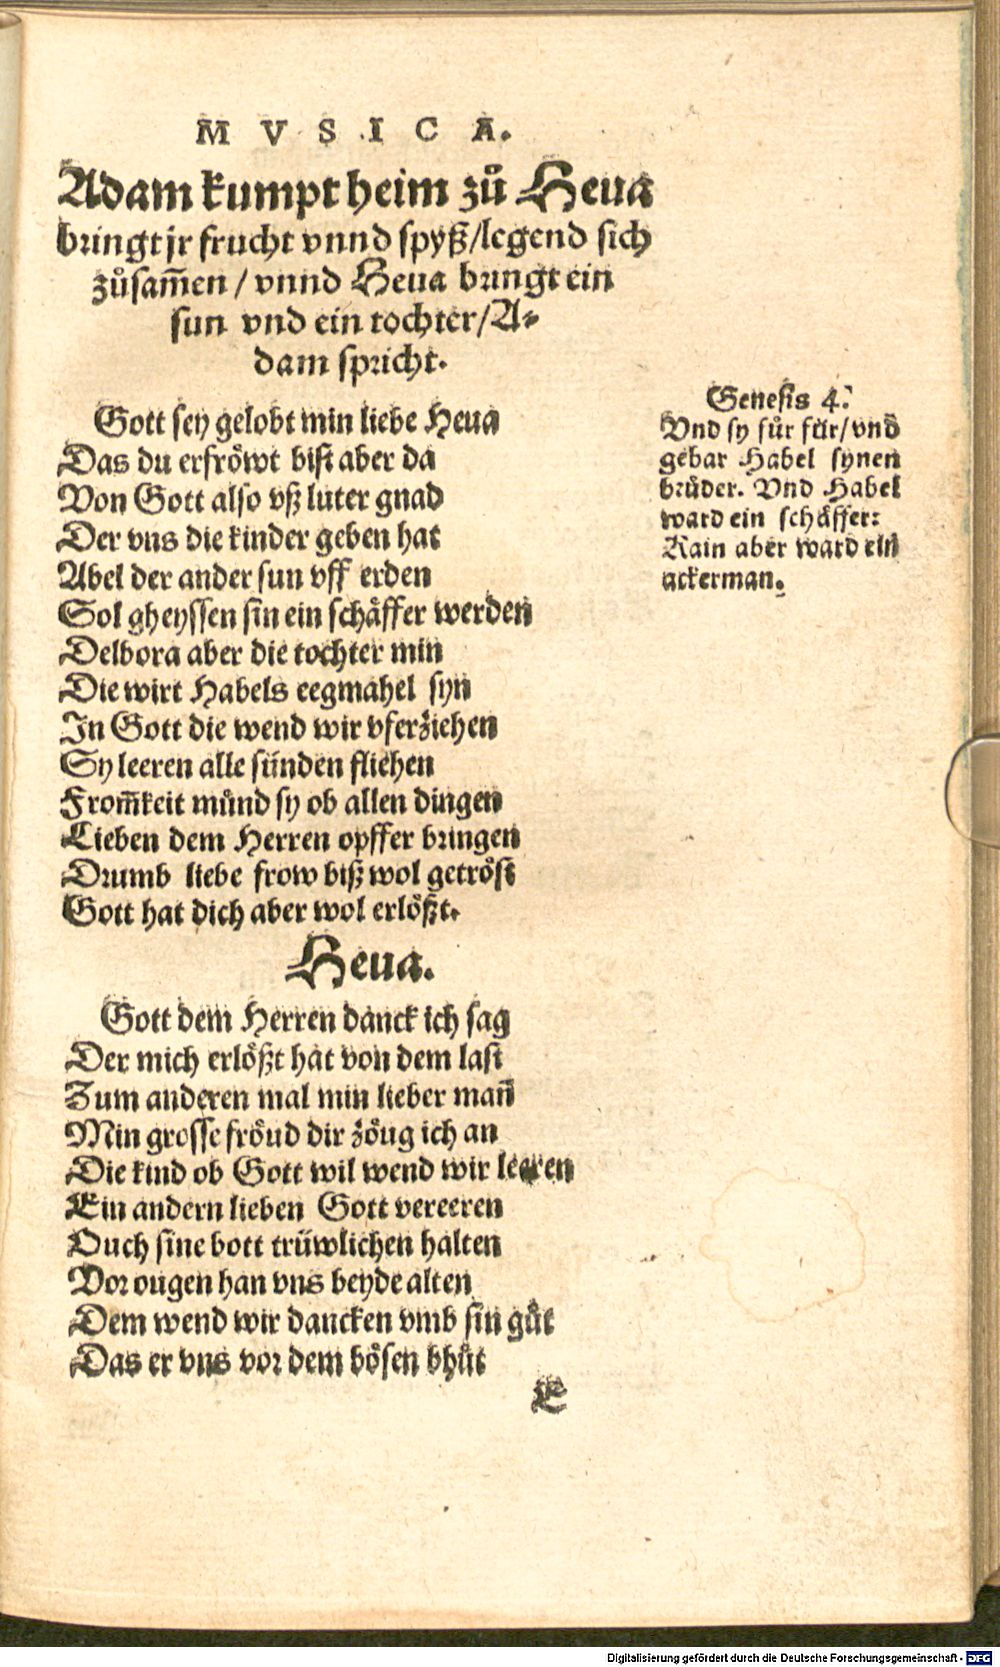 MVSICA.
Adam kumpt heim zů Heua
bringt jr frucht vnnd spyß/legend sich
zůsam̃en / vnnd Heua bringt ein
sun vnd ein tochter/A⸗
dam spricht.
Gott sey gelobt min liebe Heua
Das du erfröwt bist aber da
Von Gott also vß luter gnad
Der vns die kinder geben hat
Abel der ander sun vff erden
Sol gheyssen sin ein schäffer werden
Delbora aber die tochter min
Die wirt Habels eegmahel syn
In Gott die wend wir vferziehen
Sy leeren alle sünden fliehen
From̃keit můnd sy ob allen dingen
Lieben dem Herren opffer bringen
Drumb liebe frow biß wol getröst
Gott hat dich aber wol erlößt.
Heua.
Gott dem Herren danck ich sag
Der mich erlößt hat von dem last
Zum anderen mal min lieber mañ
Min grosse fröud dir zöug ich an
Die kind ob Gott wil wend wir leeren
Ein andern lieben Gott vereeren
Ouch sine bott trüwlichen halten
Vor ougen han vns beyde alten
Dem wend wir dancken vmb sin gůt
Das er vns vor dem bösen bhůt
E
Genesis 4.
Vnd sy fůr für/vnd
gebar Habel synen
brůder. Vnd Habel
ward ein schäffer:
Kain aber ward ein
ackerman.
Digitalisierung gefördert durch die Deutsche Forschungsgemeinschaft - DFG